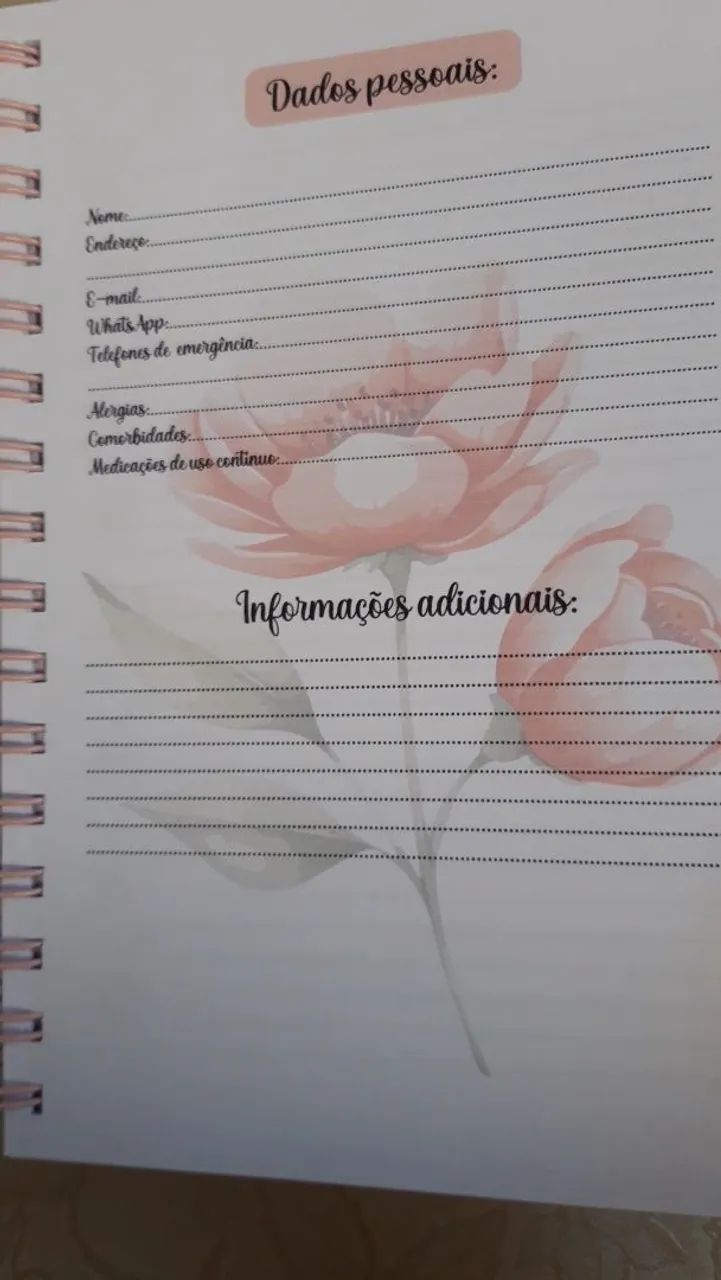 Dados pessoais:
Nome:
Endereço:
E-mail:
WhatsApp:
Telefones de emergência:
Alergias:
Comorbidades:
Medicações de uso continuo:
Informações adicionais: